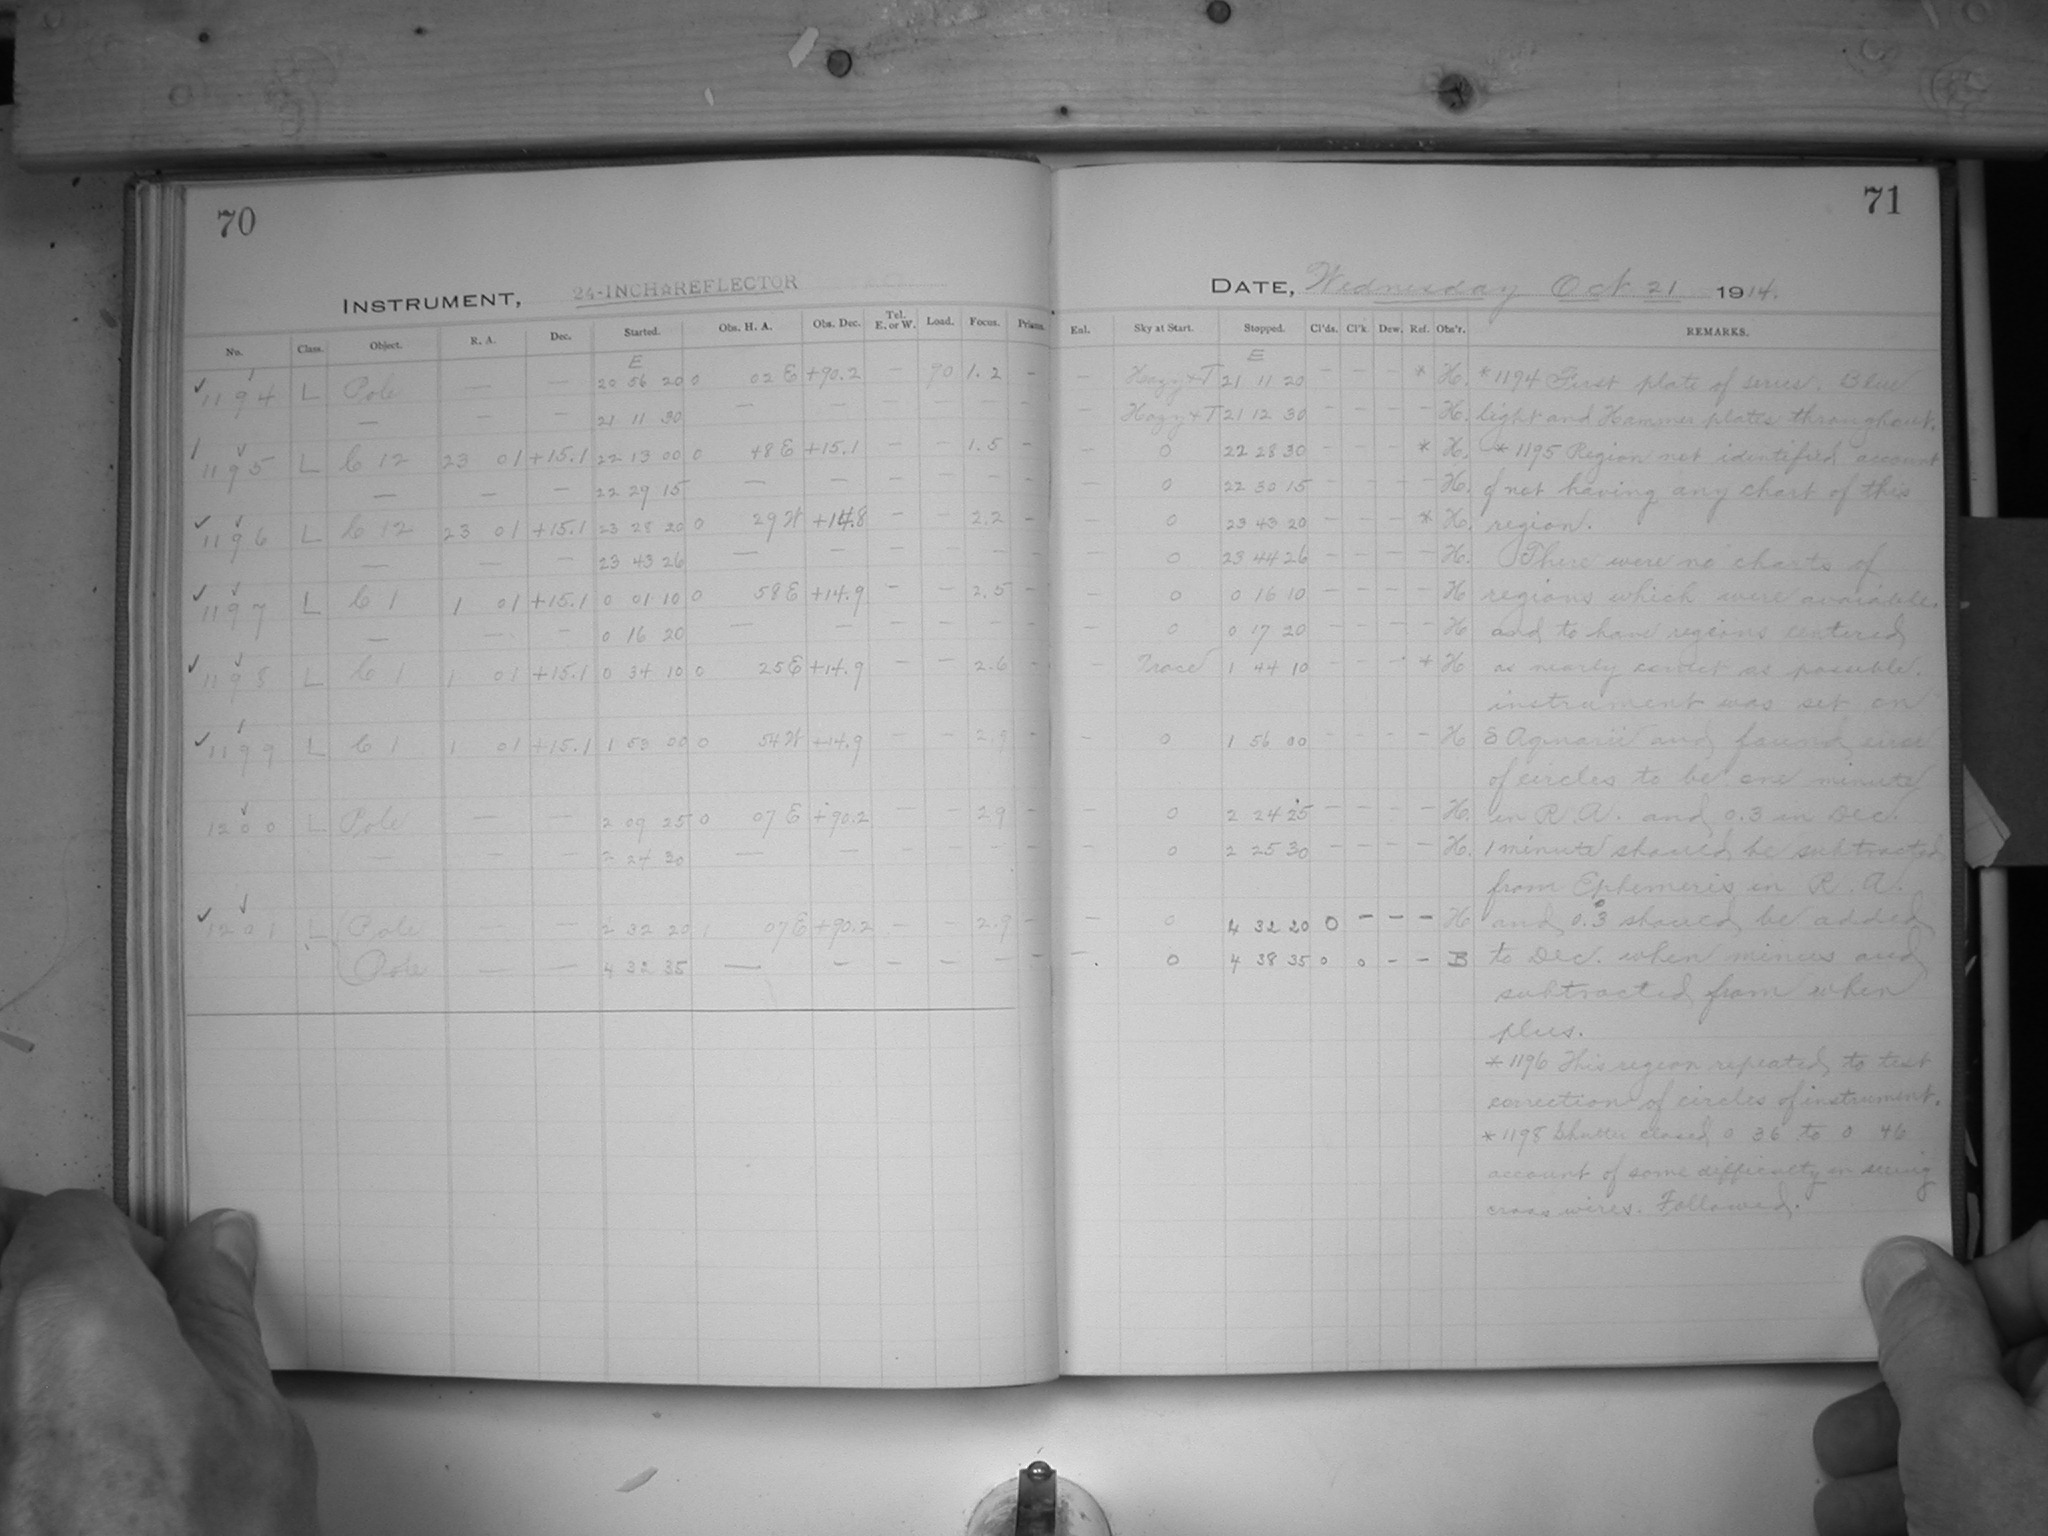 70
INSTRUMENT, 24-INCH REFLECTOR
No. Class. Object. R. A. Dec. Started. Obs. H. A. Obs. Dec. Tel. E. or W. Load. Focus. Prisms.
E
1194 L Pole — — 20 56 20 0 02 E +90.2 — 90 1.2 –
— — — 21 11 30 — — — — — –
1195 L C 12 23 01 +15.1 22 13 00 0 48 E +15.1 — — 1.5 –
— — — 22 29 15 — — — — — –
1196 L C 12 23 01 +15.1 23 28 20 0 29 W +14.8 — — 2.2 –
— — — 23 43 26 — — — — — –
1197 L C 1 1 01 +15.1 0 01 10 0 58 E +14.9 — — 2.5 –
— — — 0 16 20 — — — — — –
1198 L C 1 1 01 +15.1 0 34 10 0 25 E +14.9 — — 2.6 –
1199 L C 1 1 01 +15.1 1 53 00 0 54 W +14.9 — — 2.9 –
1200 L Pole — — 2 09 25 0 07 E +90.2 — — 2.9 –
— — — 2 24 30 — — — — — –
1201 L Pole — — 2 32 20 1 07 E +90.2 — — 2.9 –
Pole — — 4 32 35 — — — — — –
71
DATE, Wednesday Oct 21 1914.
Enl. Sky at Start. Stopped. Cl'ds. Cl'k. Dew. Ref. Obs'r. REMARKS.
E
– Hazy + T 21 11 20 – – – * H. *1194 First plate of series. Blue
– Hazy + T 21 12 30 – – – – H. light and Hammer plates throughout.
– 0 22 28 30 – – – * H. *1195 Region not identified account
– 0 22 30 15 – – – – H. of not having any chart of this
– 0 23 43 20 – – – * H. region.
– 0 23 44 26 – – – – H. There were no charts of
– 0 0 16 10 – – – – H regions which were avaiable.
– 0 0 17 20 – – – – H and to have regions centered
– Trace 1 44 10 – – – * H as nearly correct as possible.
instrument was set on
– 0 1 56 00 – – – – H δ Aquarii and found error
of circles to be one minute
– 0 2 24 25 – – – – H. in R.A. and 0.3 in Dec.
– 0 2 25 30 – – – – H. 1 minute should be subtracted
from Ephemeris in R.A.
– 0 4 32 20 0 – – – H and 0.3 should be added
– 0 4 38 35 0 0 – – B to Dec. when minus and
subtracted from when
plus.
*1196 This region repeated to test
correction of circles of instrument.
*1198 Shutter closed 0 36 to 0 46
account of some difficulty in seeing
cross wires. Followed.